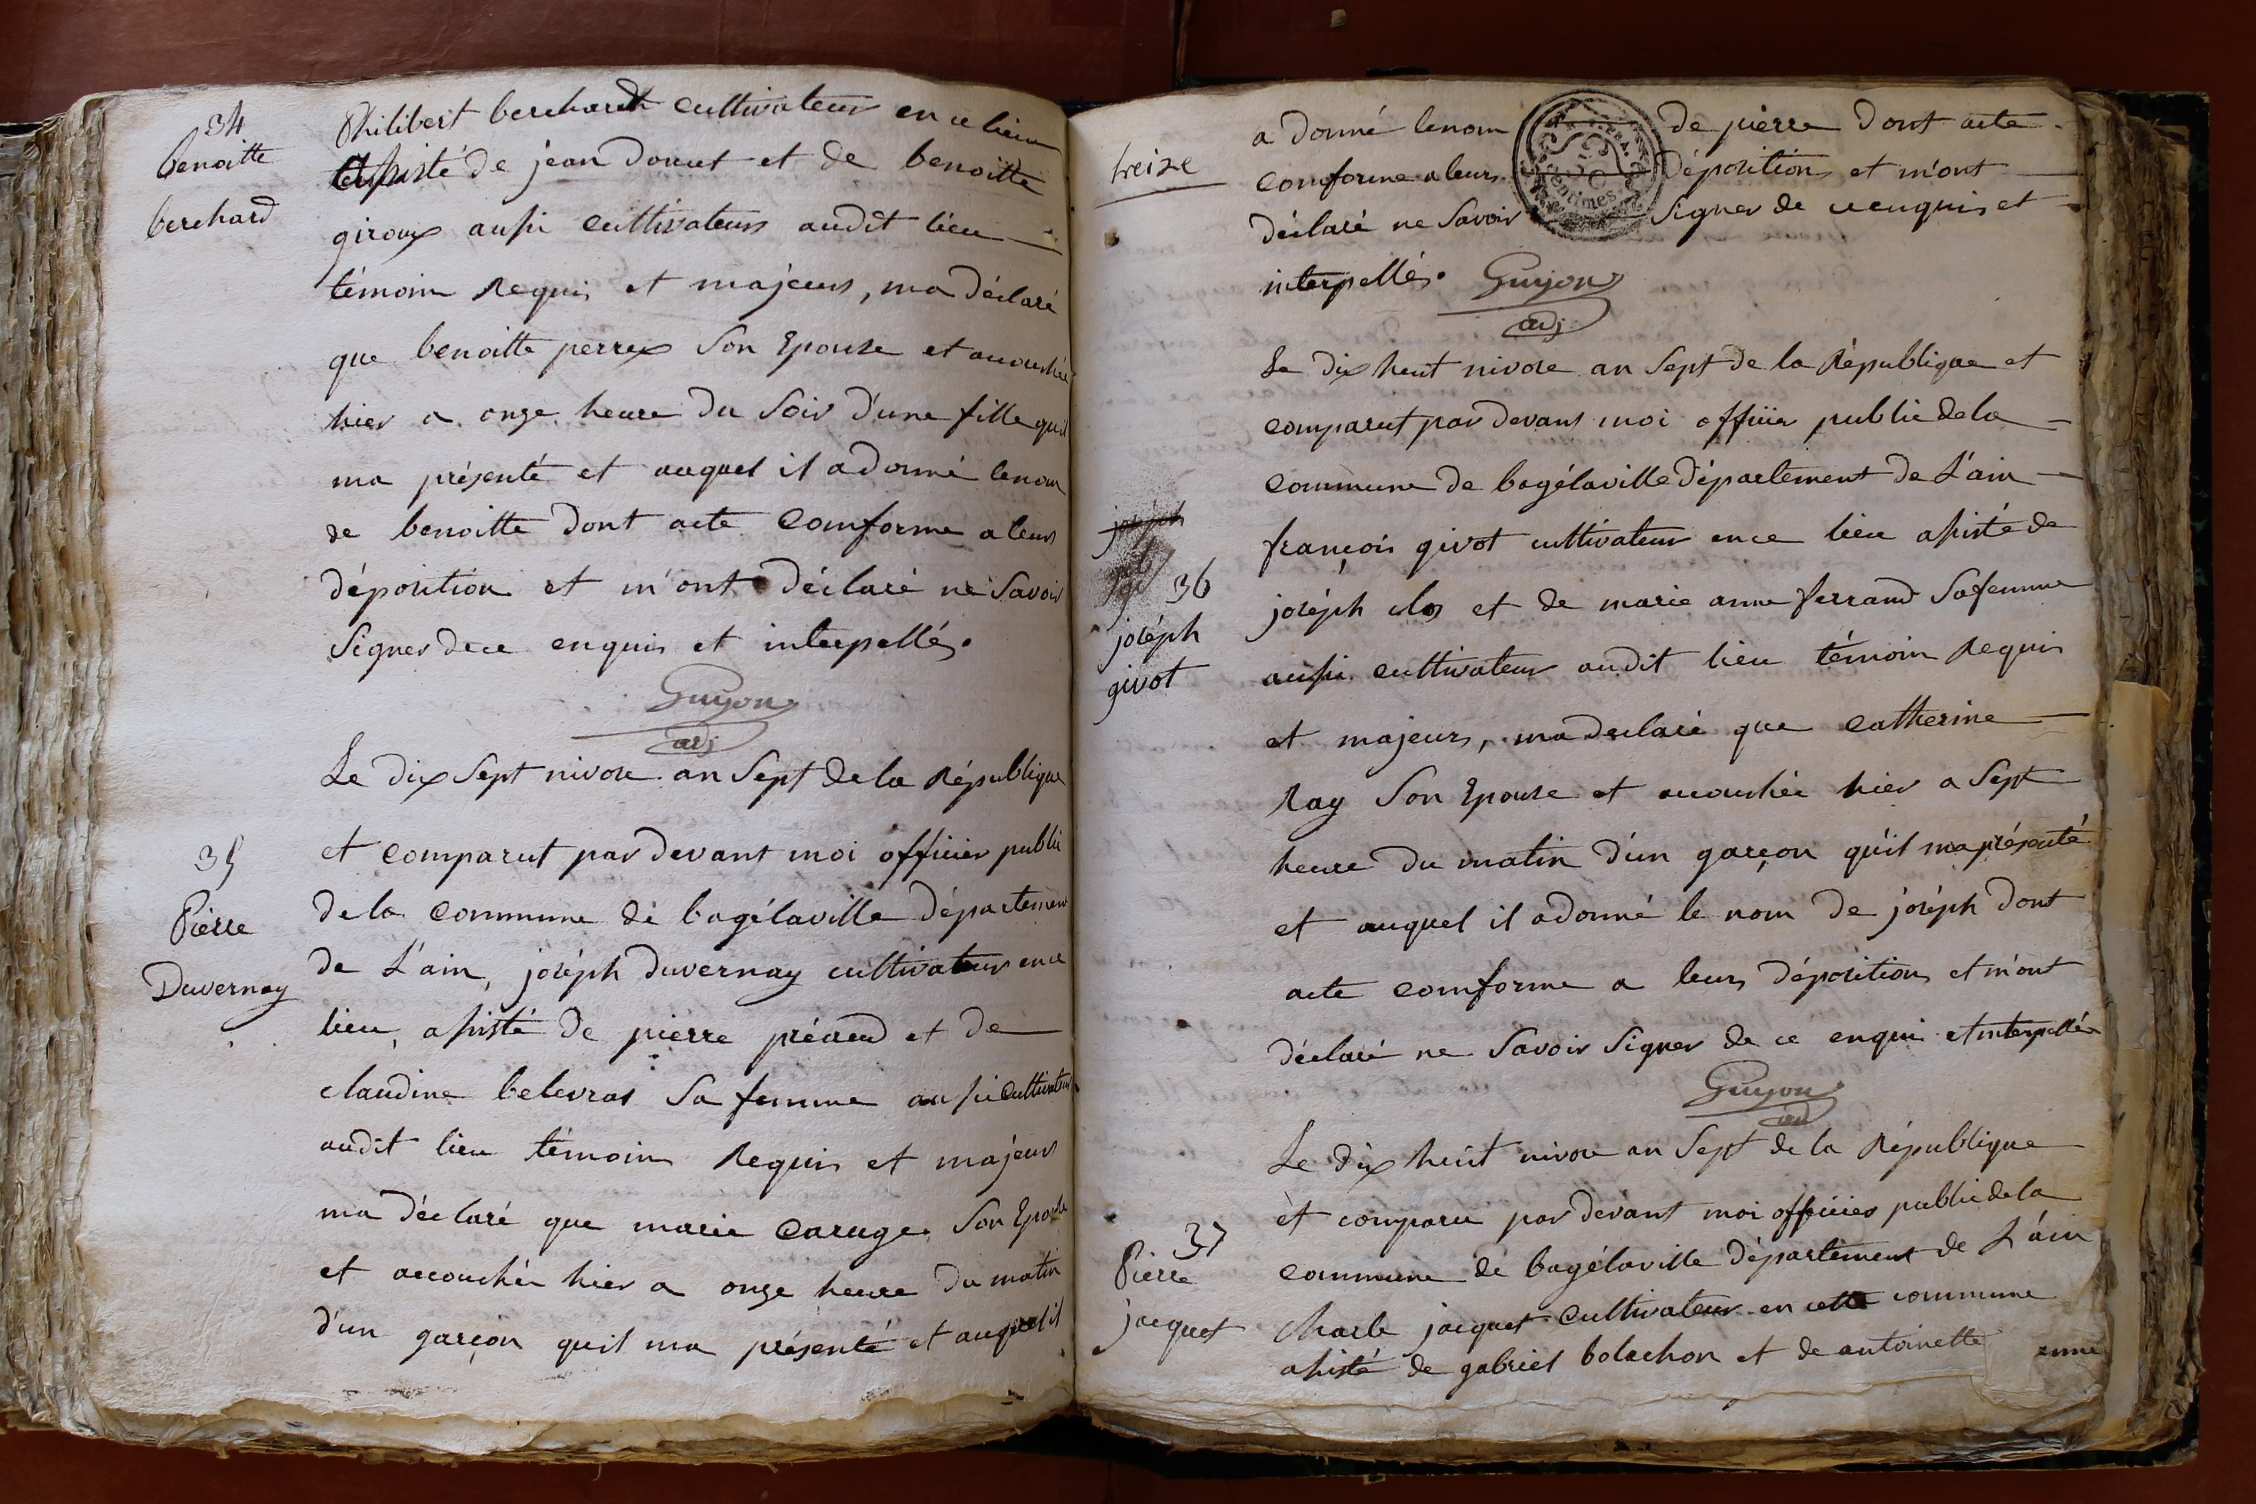 34
benoitte
berchard
Philibert berchard cultivateur en ce lieu
assisté de jean douet et de benoitte
giroux aussi cultivateurs audit lieu
témoin Requis et majeurs, ma déclaré
que benoitte perrex son Epouse et accouchée
hier a onze heure du soir d'une fille quil
ma présenté et auquel il a donné lenom
de benoitte dont acte Comforme a leurs
déposition et m'ont déclaré ne savoir
signer de ce enquis et interpellés.
Guyon
adj
35
Pierre
Duvernay
Le dix sept nivose an sept de la République
et comparut par devant moi officier public
de la commune de bagélaville département
de L'ain, joséph duvernay cultivateur en ce
lieu, assisté de pierre préaud et de
claudine belevras sa femme aussi Cultivateurs
audit lieu témoins Requis et majeurs
ma déclaré que marie Caruge son Epouse
et accouchée hier a onze heure du matin
d'un garçon quil ma présenté et auquel il
treize
a donné lenom de pierre dont acte
comforme a leurs déposition et m'ont
déclaré ne savoir signer de ce enquis et
interpellés.
centimes
Guyon
adj
joseph
36
joséph
givot
Le dix huit nivose an sept de la République et
comparut par devant moi officier public de la
commune de bagélaville département de L'ain
françois givot cultivateur en ce lieu assisté de
joséph clos et de marie anne ferrand sa femme
aussi cultivateur audit lieu témoin Requis
et majeurs, ma declaré que catherine
Ray son Epouse et accouchée hier a sept
heure du matin d'un garçon qu'il ma présenté
et auquel il a donné le nom de joséph dont
acte comforme a leurs déposition et m'ont
déclaré ne savoir signer de ce enquis et interpellés
Guyon
adj
37
Pierre
jacquet
Le dix huit nivose an sept de la République
et comparu par devant moi officier public de la
commune de bagélaville département de L'ain
charle jacquet cultivateur en cette commune
assisté de gabriel bolachon et de antoinette